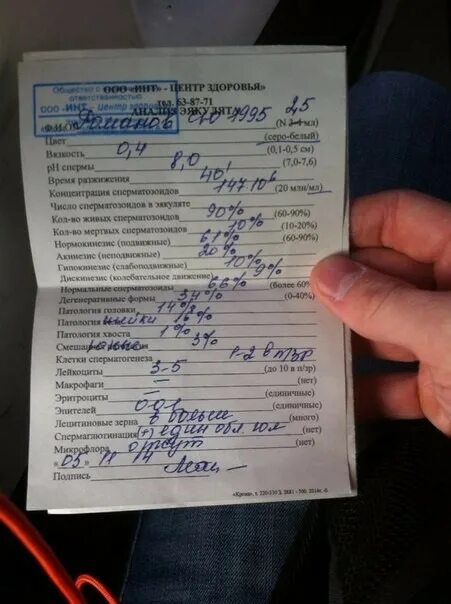 ООО «ИНТ» - ЦЕНТР ЗДОРОВЬЯ»
Общество с
ответственностью
ООО «ИНТ» - Центр здоров
тел. 63-87-71
АНАЛИЗ ЭЯКУЛЯТА
Ф.И.О. Романов 1995 2,5 (N 2-4 мл)
Цвет (серо-белый)
Вязкость 0,4 (0,1-0,5 см)
pH спермы 8,0 (7,0-7,6)
Время разжижения 40'
Концентрация сперматозоидов 147·10⁶ (20 млн/мл)
Число сперматозоидов в эякуляте
Кол-во живых сперматозоидов 90% (60-90%)
Кол-во мертвых сперматозоидов 10% (10-20%)
Нормокинезис (подвижные) 61% (60-90%)
Акинезис (неподвижные) 20%
Гипокинезис (слабоподвижные) 10%
Дискинезис (колебательное движение) 9%
Нормальные сперматозоиды 66% (более 60%
Дегенеративные формы 34% (0-40%)
Патология головки 14%
Патология шейки 16%
Патология хвоста 1%
Смешанные 3%
Клетки сперматогенеза 1-2 в п/зр
Лейкоциты 3-5 (до 10 в п/зр)
Макрофаги — (нет)
Эритроциты — (единичные)
Эпителий 0-0-1 (единичные)
Лецитиновые зерна в больш (много)
Спермаглютинация (+) един обл. пол (нет)
Микрофлора отсут (нет)
«05» 11 14
Подпись
«Крона», т. 220-330 З. 2881 - 500. 2014г. -б